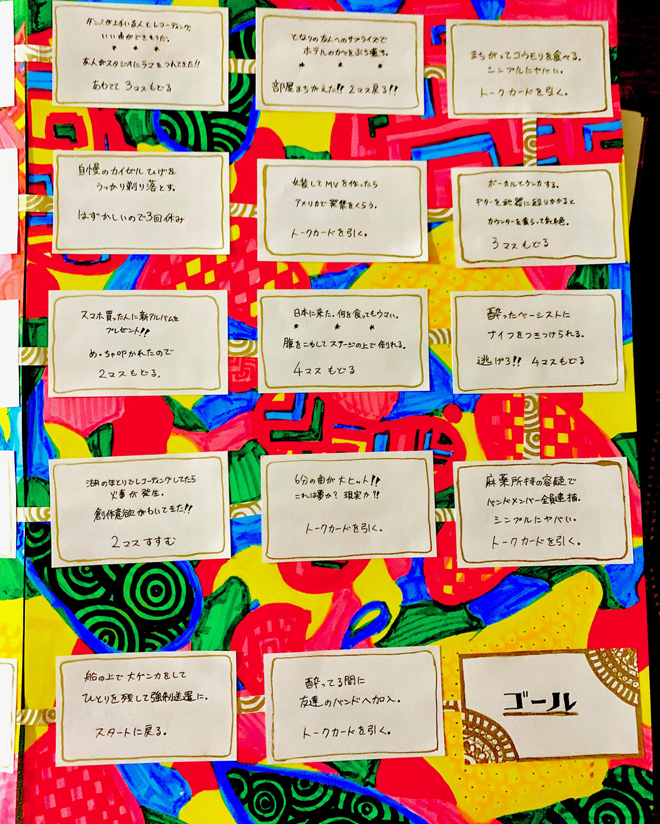 ダンスが上手い友人とレコーディング。
いい曲ができそうだ。
* * *
友人がスタジオにラマをつれてきた!!
あわてて 3コマもどる
となりの友人へのサプライズで
ホテルのカベをぶち壊す。
* * *
部屋まちがえた!! 2コマ戻る!!
まちがってコウモリを食べる。
シンプルにヤバい。
トークカードを引く。
自慢のカイゼルひげを
うっかり剃り落とす。
はずかしいので3回休み
女装してMVを作ったら
アメリカで発禁をくらう。
トークカードを引く。
ボーカルとケンカする。
ギターを武器に殴りかかると
カウンターを食らって気絶。
3コマ もどる
スマホ買った人に新アルバムを
プレゼント!!
めっちゃ叩かれたので
2コマもどる。
日本に来た。何を食ってもウマい。
* * *
腹をこわしてステージの上で倒れる。
4コマ もどる
酔ったベーシストに
ナイフをつきつけられる。
逃げろ!! 4コマもどる
湖のほとりでレコーディングしてたら
火事が発生。
創作意欲がわいてきた!!
2コマすすむ
6分の曲が大ヒット!!
これは夢か? 現実か?!
トークカードを引く。
麻薬所持の容疑で
バンドメンバー全員逮捕。
シンプルにヤバい。
トークカードを引く。
船の上で大ケンカをして
ひとりを残して強制送還に。
スタートに戻る。
酔ってる間に
友達のバンドへ加入。
トークカードを引く。
ゴール